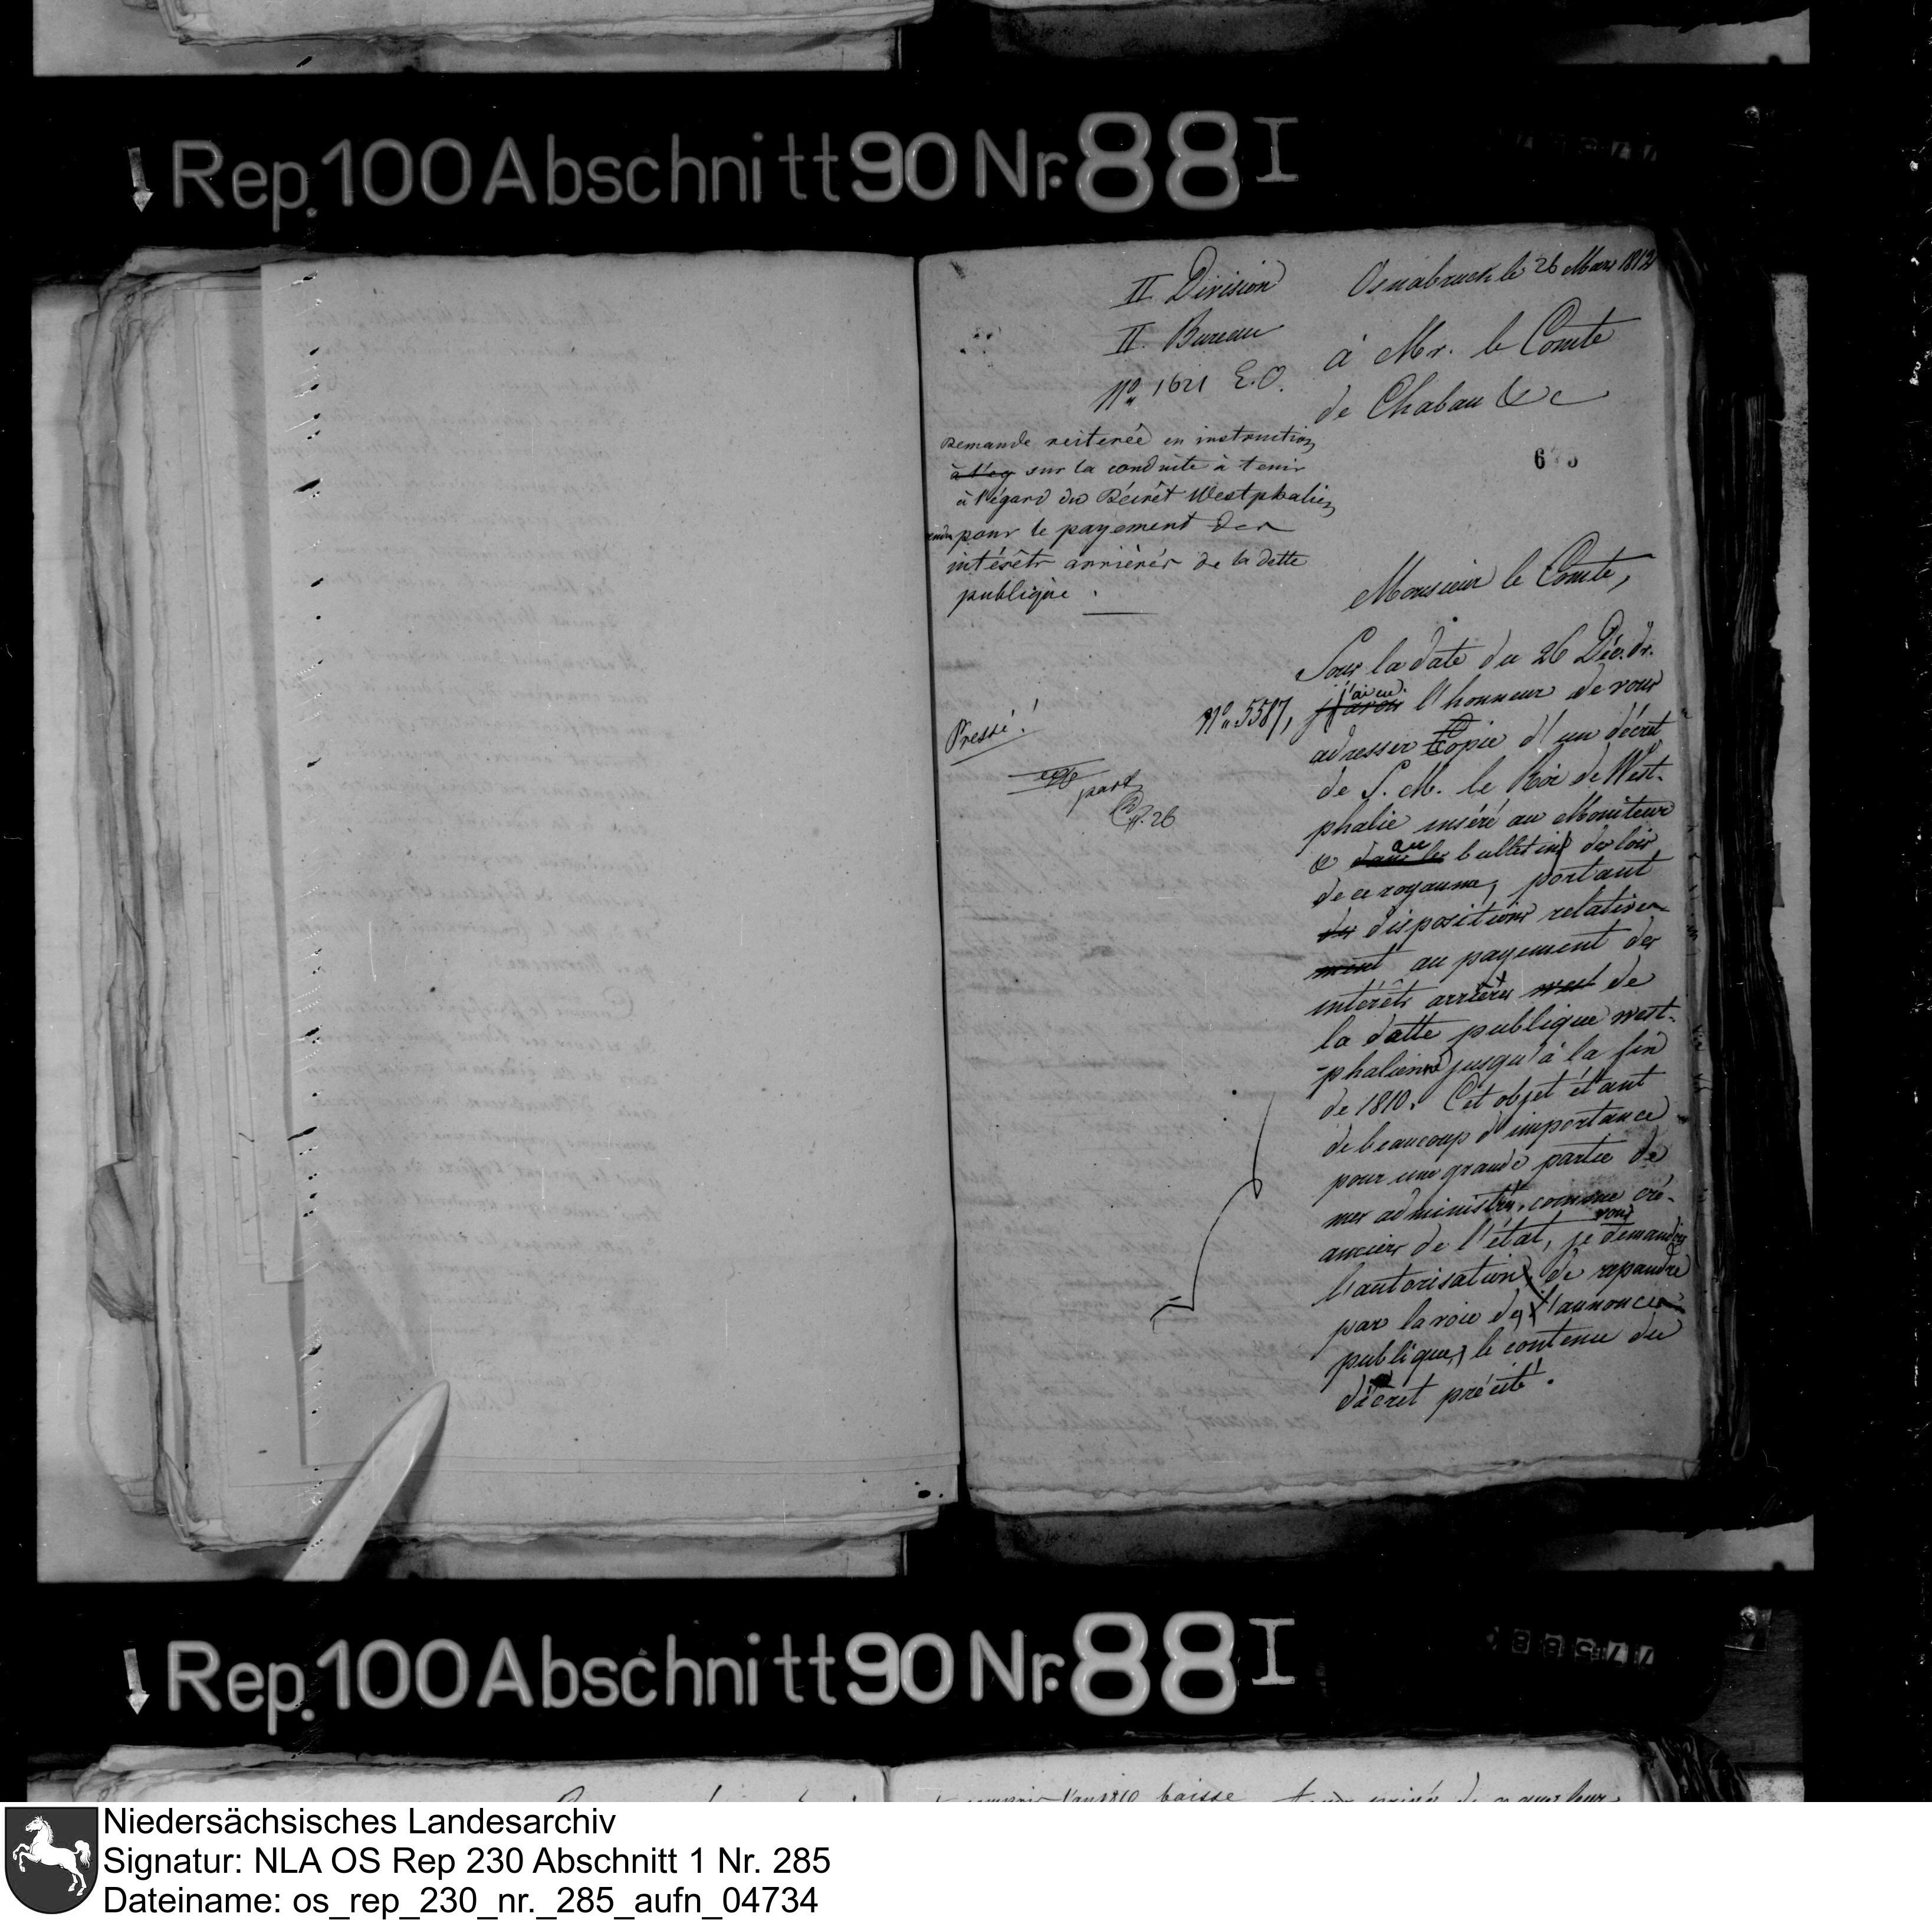 Rep. 100 Abschnitt 90 Nr. 88 I
II Division
II. Bureau
No. 1621 E.O.
Osnabruck le 26 Mars 1812
à Mr. le Comte
de Chaban &c
Demande reiterée en instruction
à l'eg sur la conduite à tenir
à l'égard du Décrêt Westphalien
pour le payement des
intérêts arriérés de la dette
publique.
Pressé!
part
26
Monsieur le Comte,
Sous la date du 26 Déc. dr.
No. 5587, j'avois j'ai eu l'honneur de vous
adresser Copie d'un décret
de S. M. le Roi de West-
phalie inséré au Moniteur
& dans les au bulletin des lois
de ce royaume, portant
des dispositions relative
ment au payement des
intérêts arriérés west de
la dette publique west-
phalienne jusqu'à la fin
de 1810. Cet objet étant
de beaucoup d'importance
pour une grande partie de
mes administrés, comme cré-
anciers de l'état, je vous demandois
l'autorisation de repandre
par la voie de l'annonce
publique, le contenu du
décret précité.
Rep. 100 Abschnitt 90 Nr. 88 I
Niedersächsisches Landesarchiv
Signatur: NLA OS Rep 230 Abschnitt 1 Nr. 285
Dateiname: os_rep_230_nr._285_aufn_04734